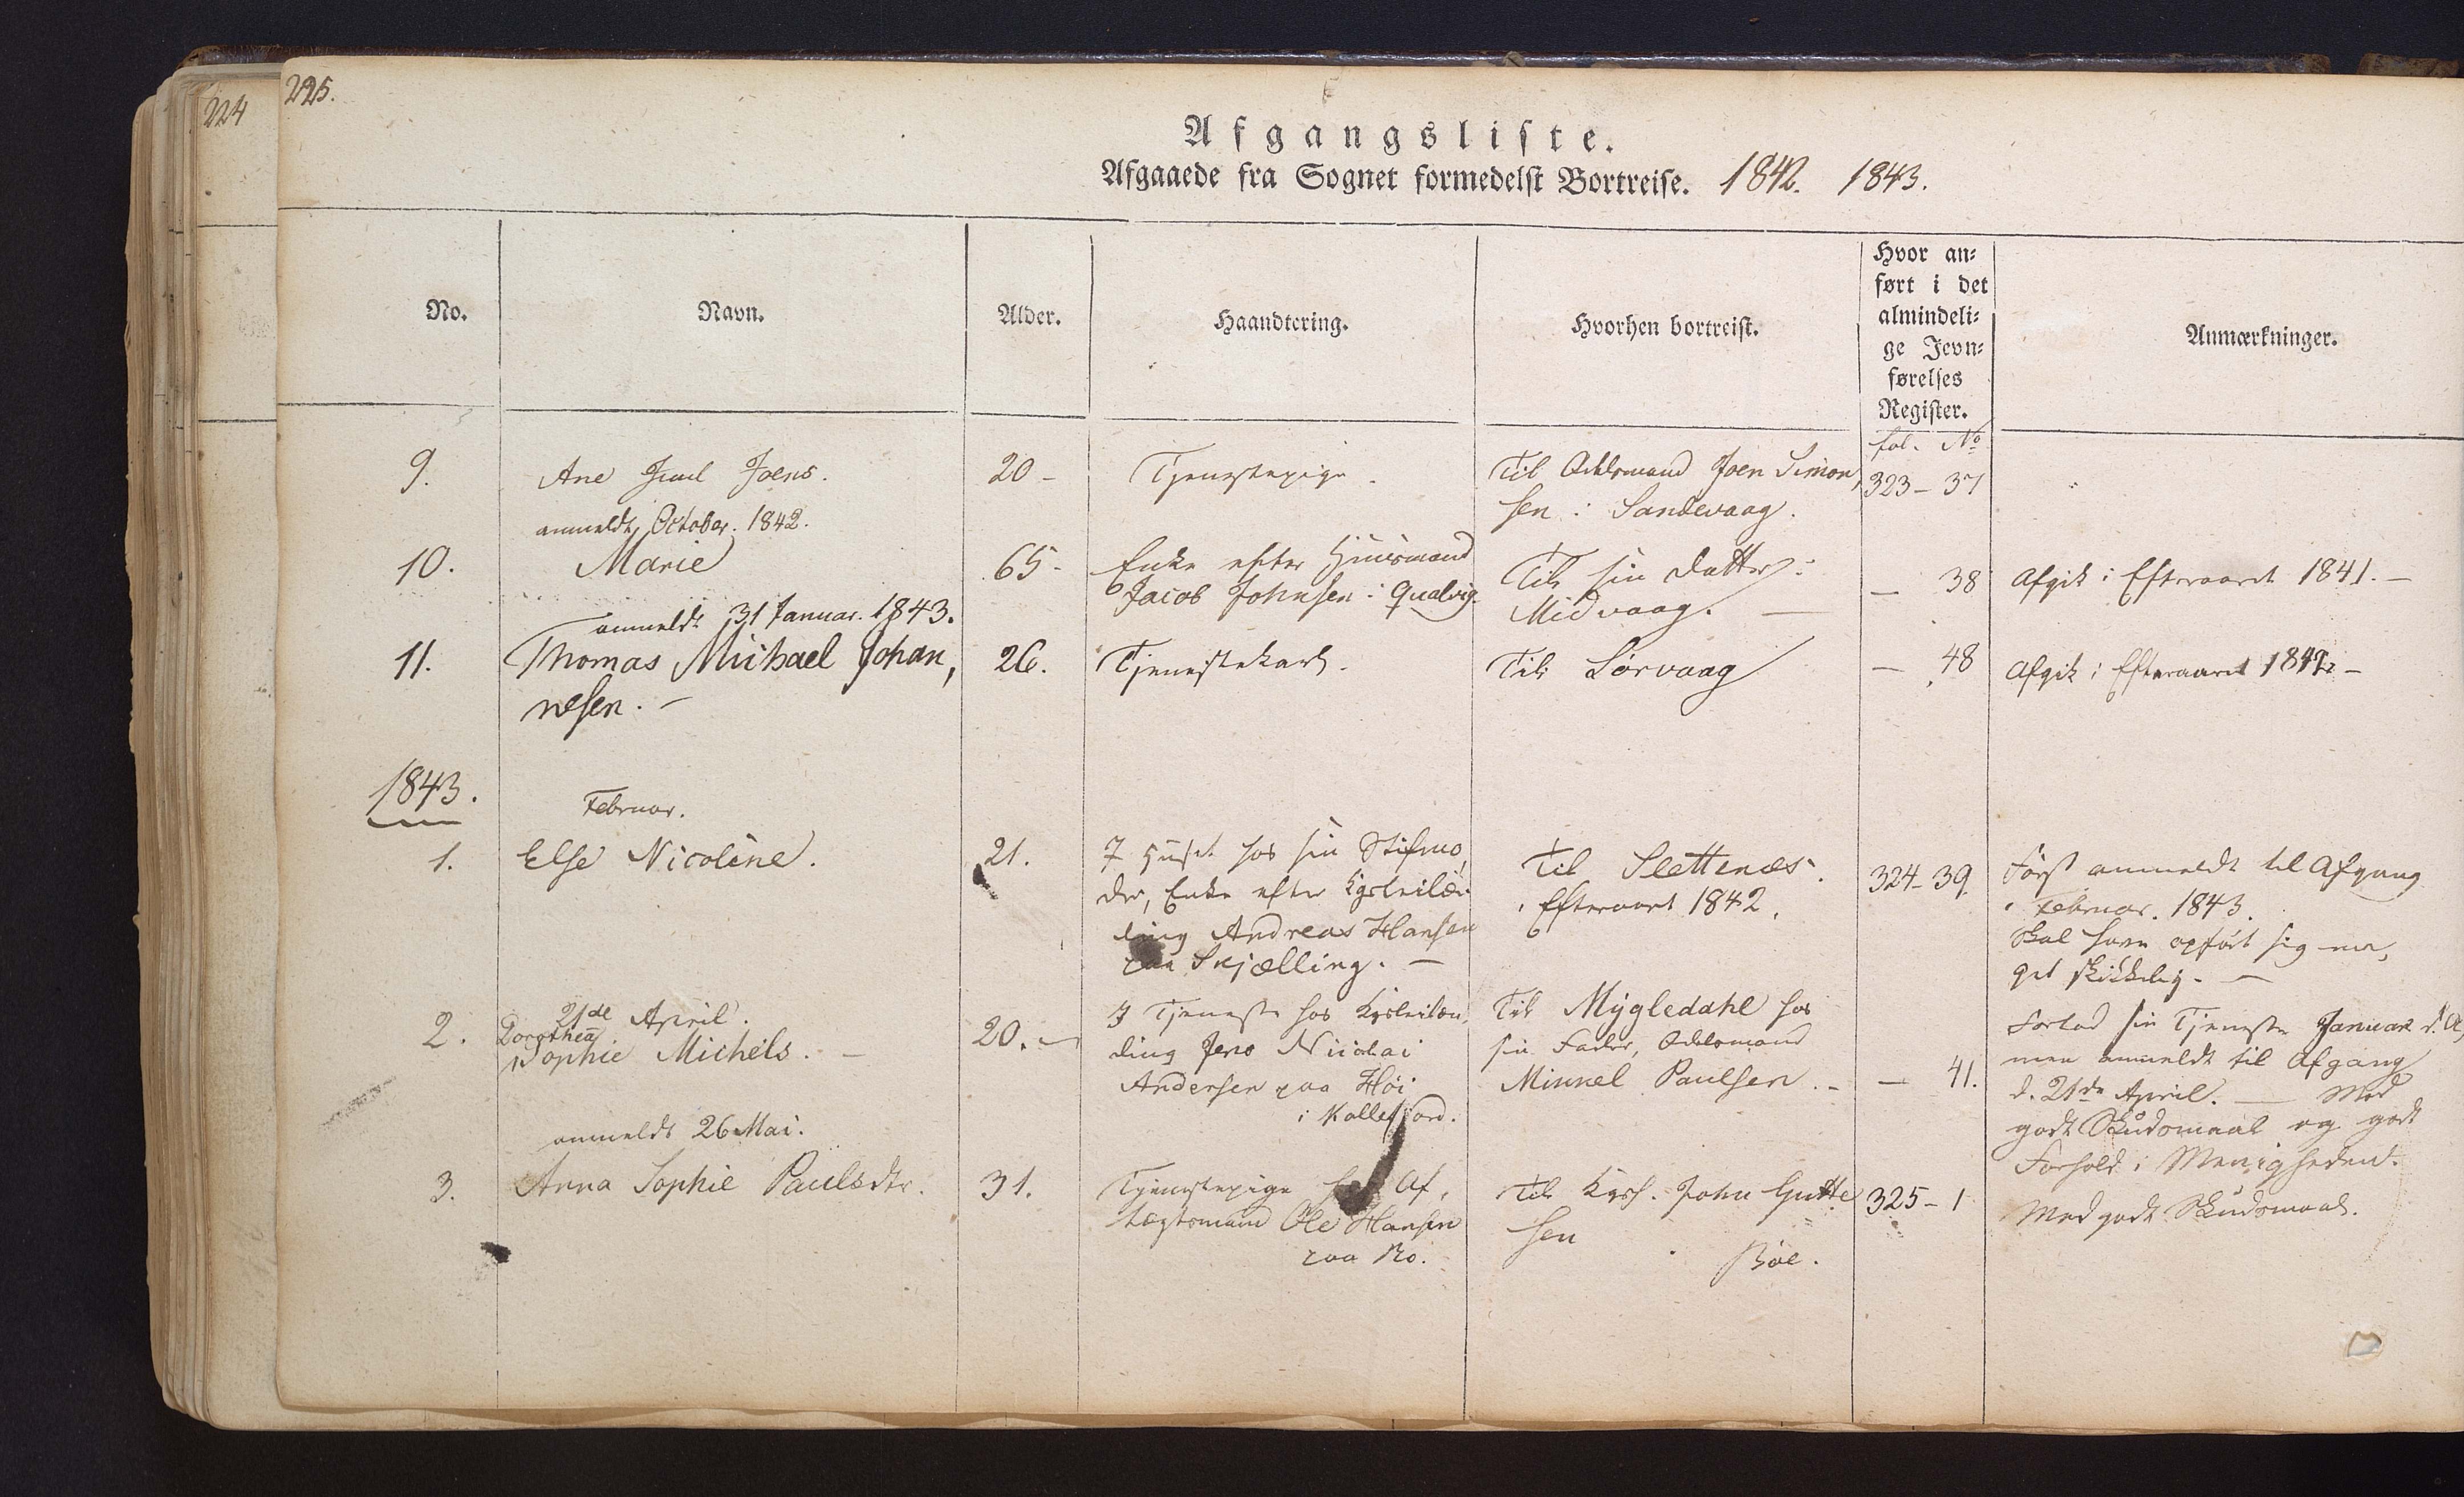 224
225.
Afgangsliste.
Afgaaede fra Sognet formedelst Bortreise. 1842. 1843.
No.
Navn.
Alder.
Haandtering.
Hvorhen bortreist.
Hvor an-
ført i det
almindeli-
ge Jevn-
førelses
Register.
Anmærkninger.
fol. No
9.
Ane Joens.
20 -
Tjenestepige.
Til Odelsmand Joen Simon,
sen i Sandevaag.
323 - 37
anmeldt October. 1842.
10.
Marie
65 -
Enke efter Huusmand
Jacob Johnsen i Qualvig.
Til sin Datter i
Midvaag. —
— 38
Afgik i Efteraaret 1841. —
anmeldt 31 Januar. 1843.
11.
Thomas Michael Johan,
nesen. —
26.
Tjenestekarl.
Til Sørvaag
— 48
Afgik i Efteraaret 1842 —
1843.
Februar.
1.
Else Nicoline.
21.
I Huset hos sin Stifmo,
der, Enke efter Kgsleilæn
ding Andreas Hansen
paa Skjælling. —
Til Slettenæs.
i Efteraaret 1842.
324 - 39.
Først anmeldt til Afgang
i Februar. 1843.
Skal have opført sig me,
get skikkelig. —
21de April.
2.
Dorothea
Sophie Michels. —
20. —
I Tjeneste hos Kgsleilæn,
ding Jens Nicolai
Andersen paa Høi
i Kollefjord.
Til Mygledahl hos
sin Fader, Odelsmand
Minkel Paulsen. -
— 41.
Forlod sin Tjeneste Januar d. A,
men anmeldt til Afgang
d. 21de April. — Med
godt Skudsmaal og godt
Forhold i Menigheden.
anmeldt 26 Mai.
3.
Anna Sophie Paulsdtr.
31.
Tjenestepige hos Af,
tægtsmand Ole Hansen
paa Bø.
Til John Gutte
sen
Böe.
325 - 1
Med godt Skudsmaal.